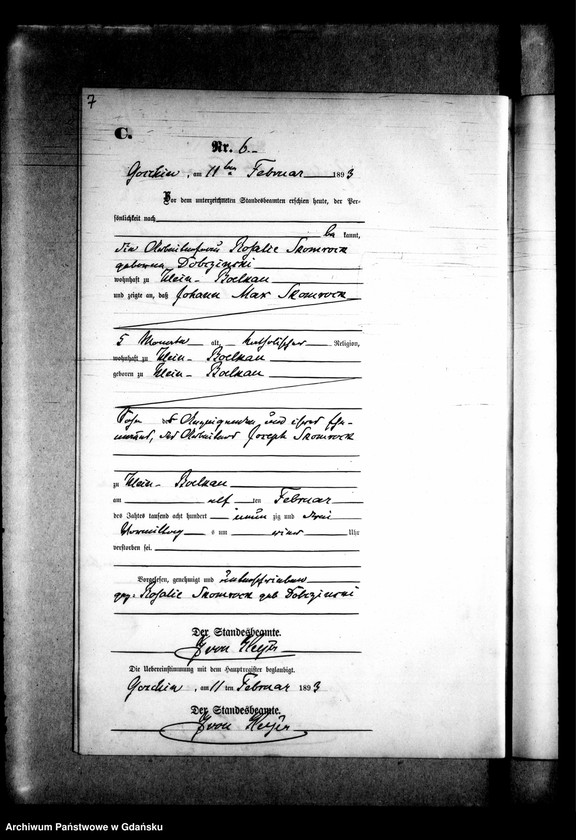 7
C.
Nr. 6.
Goschin, am 11ten Februar 1893
Vor dem unterzeichneten Standesbeamten erschien heute, der Per-
sönlichkeit nach
be kannt,
die Arbeiterfrau Rosalie Skomrock
geborene Dobczinski
wohnhaft zu Klein-Boelkau
und zeigte an, daß Johann Max Skomrock
5 Monate alt, katholischer Religion,
wohnhaft zu Klein-Boelkau
geboren zu Klein-Boelkau
Sohn der Anzeigenden und ihres Ehe-
manns, des Arbeiters Joseph Skomrock
zu Klein-Boelkau
am elf ten Februar
des Jahres tausend acht hundert neun zig und drei
Vormittags um einer Uhr
verstorben sei.
Vorgelesen, genehmigt und unterschrieben
gez. Rosalie Skomrock geb Dobczinski
Der Standesbeamte.
von Heyer
Die Uebereinstimmung mit dem Hauptregister beglaubigt.
Goschin, am 11 ten Februar 1893
Der Standesbeamte.
von Heyer
Archiwum Państwowe w Gdańsku